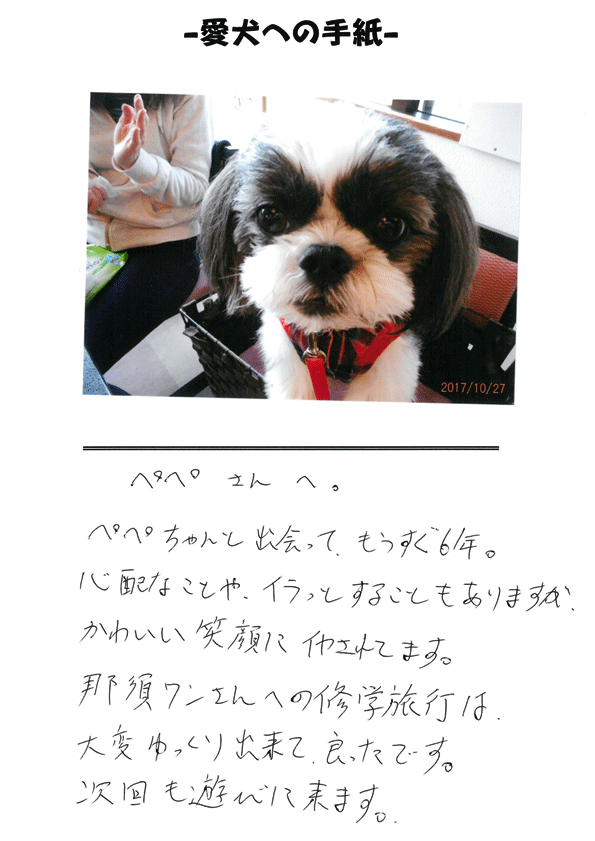 -愛犬への手紙-
2017/10/27
ペペ さん へ。
ペペちゃんと出会って、もうすぐ6年。
心配なことや、イラっとすることもありますが、
かわいい笑顔に されてます。
那須ワンさんへの修学旅行は、
大変ゆっくり出来て、良ったです。
次回も遊びに来ます。